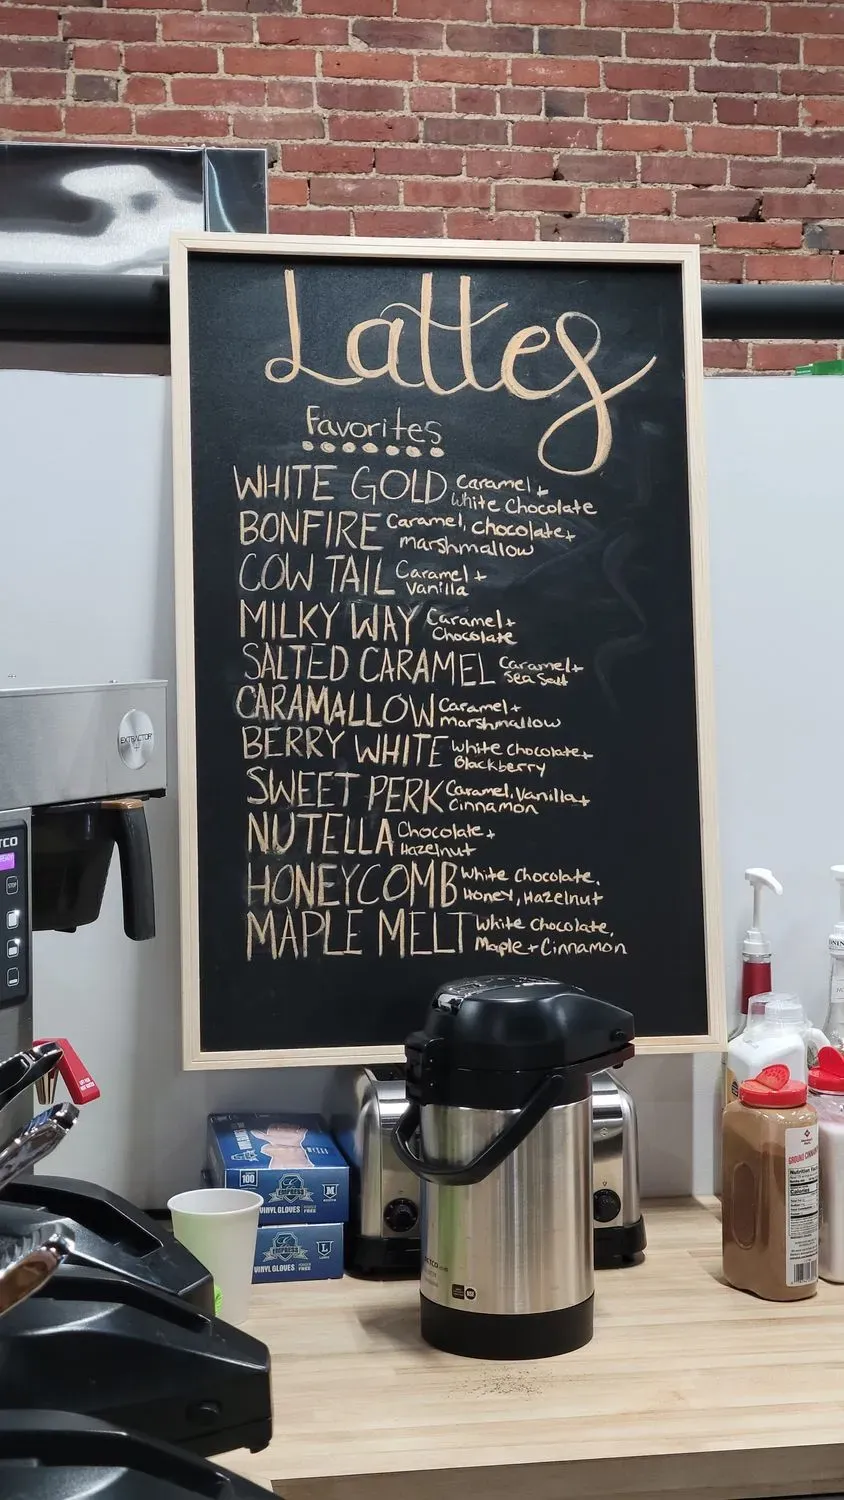 Lattes
Favorites
WHITE GOLD Caramel +
White Chocolate
BONFIRE Caramel, Chocolate +
marshmallow
COW TAIL Caramel +
Vanilla
MILKY WAY Caramel +
Chocolate
SALTED CARAMEL Caramel +
Sea Salt
CARAMALLOW Caramel +
marshmallow
BERRY WHITE White Chocolate +
Blackberry
SWEET PERK Caramel, Vanilla +
Cinnamon
NUTELLA Chocolate +
Hazelnut
HONEYCOMB White Chocolate,
Honey, Hazelnut
MAPLE MELT White Chocolate,
Maple + Cinnamon
EXTRACTOR
100
EMPRESS
M
VINYL GLOVES POWDER FREE
EMPRESS
L
VINYL GLOVES POWDER FREE
NSF
GROUND CINNAMON
Nutrition Facts
Calories